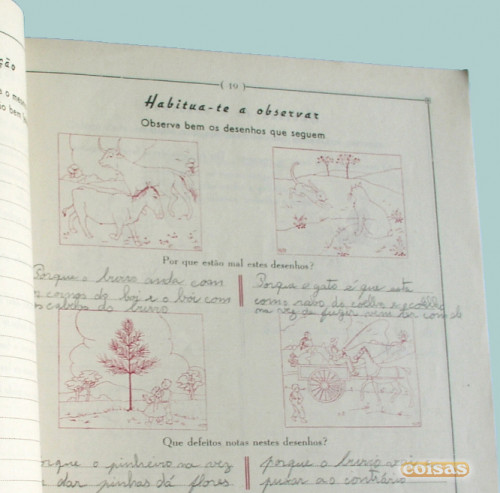 ção
o mesmo
( 19 )
Habitua-te a observar
Observa bem os desenhos que seguem
Por que estão mal estes desenhos?
Porque o burro anda com
os cornos do boi e o boi com
os cabelos do burro
Porque o gato é que esta
com o rabo do coelho e o coelho
na vez de fuzir vem ter com ele
Que defeitos notas nestes desenhos?
porque o pinheiro na vez
de dar pinhas dá flores
porque o burro vai
puxar ao contrário
coisas